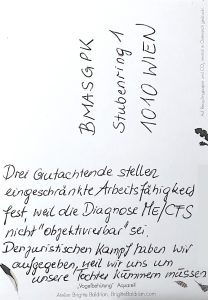 BMASGPK
Stubenring 1
1010 WIEN
Drei Gutachtende stellen
eingeschränkte Arbeitsfähigkeit
fest, weil die Diagnose ME/CFS
nicht "objektivierbar" sei.
Den juristischen Kampf haben wir
aufgegeben, weil wir uns um
unsere Tochter kümmern müssen
"Vogelbehütung" Aquarell
Atelier Brigitte Baldrian, BrigitteBaldrian.com